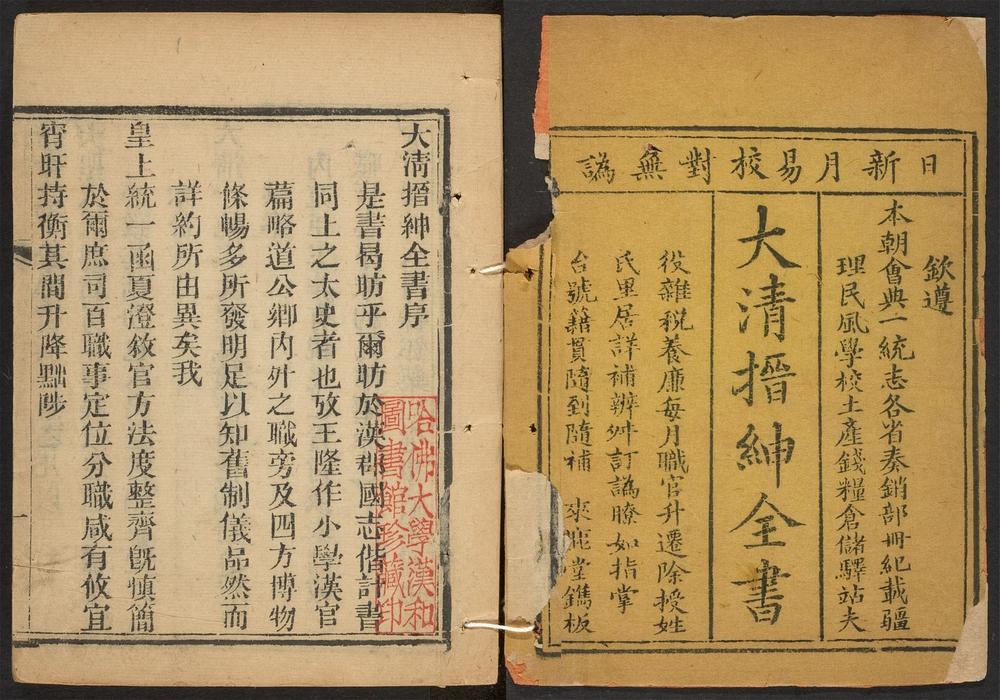 日新月易校對無譌
欽遵
本朝會典一統志各省奏銷部冊紀載疆
理民風學校土產錢糧倉儲驛站夫
大清搢紳全書
役雜稅養廉每月職官升遷除授姓
氏里居詳補辨舛訂譌瞭如指掌
台號籍貫隨到隨補 來鹿堂鐫板
大清搢紳全書序
是書曷昉乎爾昉於漢郡國志偕計書
同上之太史者也攷王隆作小學漢官
篇略道公卿內外之職旁及四方博物
條暢多所發明足以知舊制儀品然而
詳約所由異矣我
皇上統一函夏澄敘官方法度整齊旣慎簡
於爾庶司百職事定位分職咸有攸宜
宵旰持衡其間升降黜陟
一
哈佛大學漢和
圖書館珍藏印